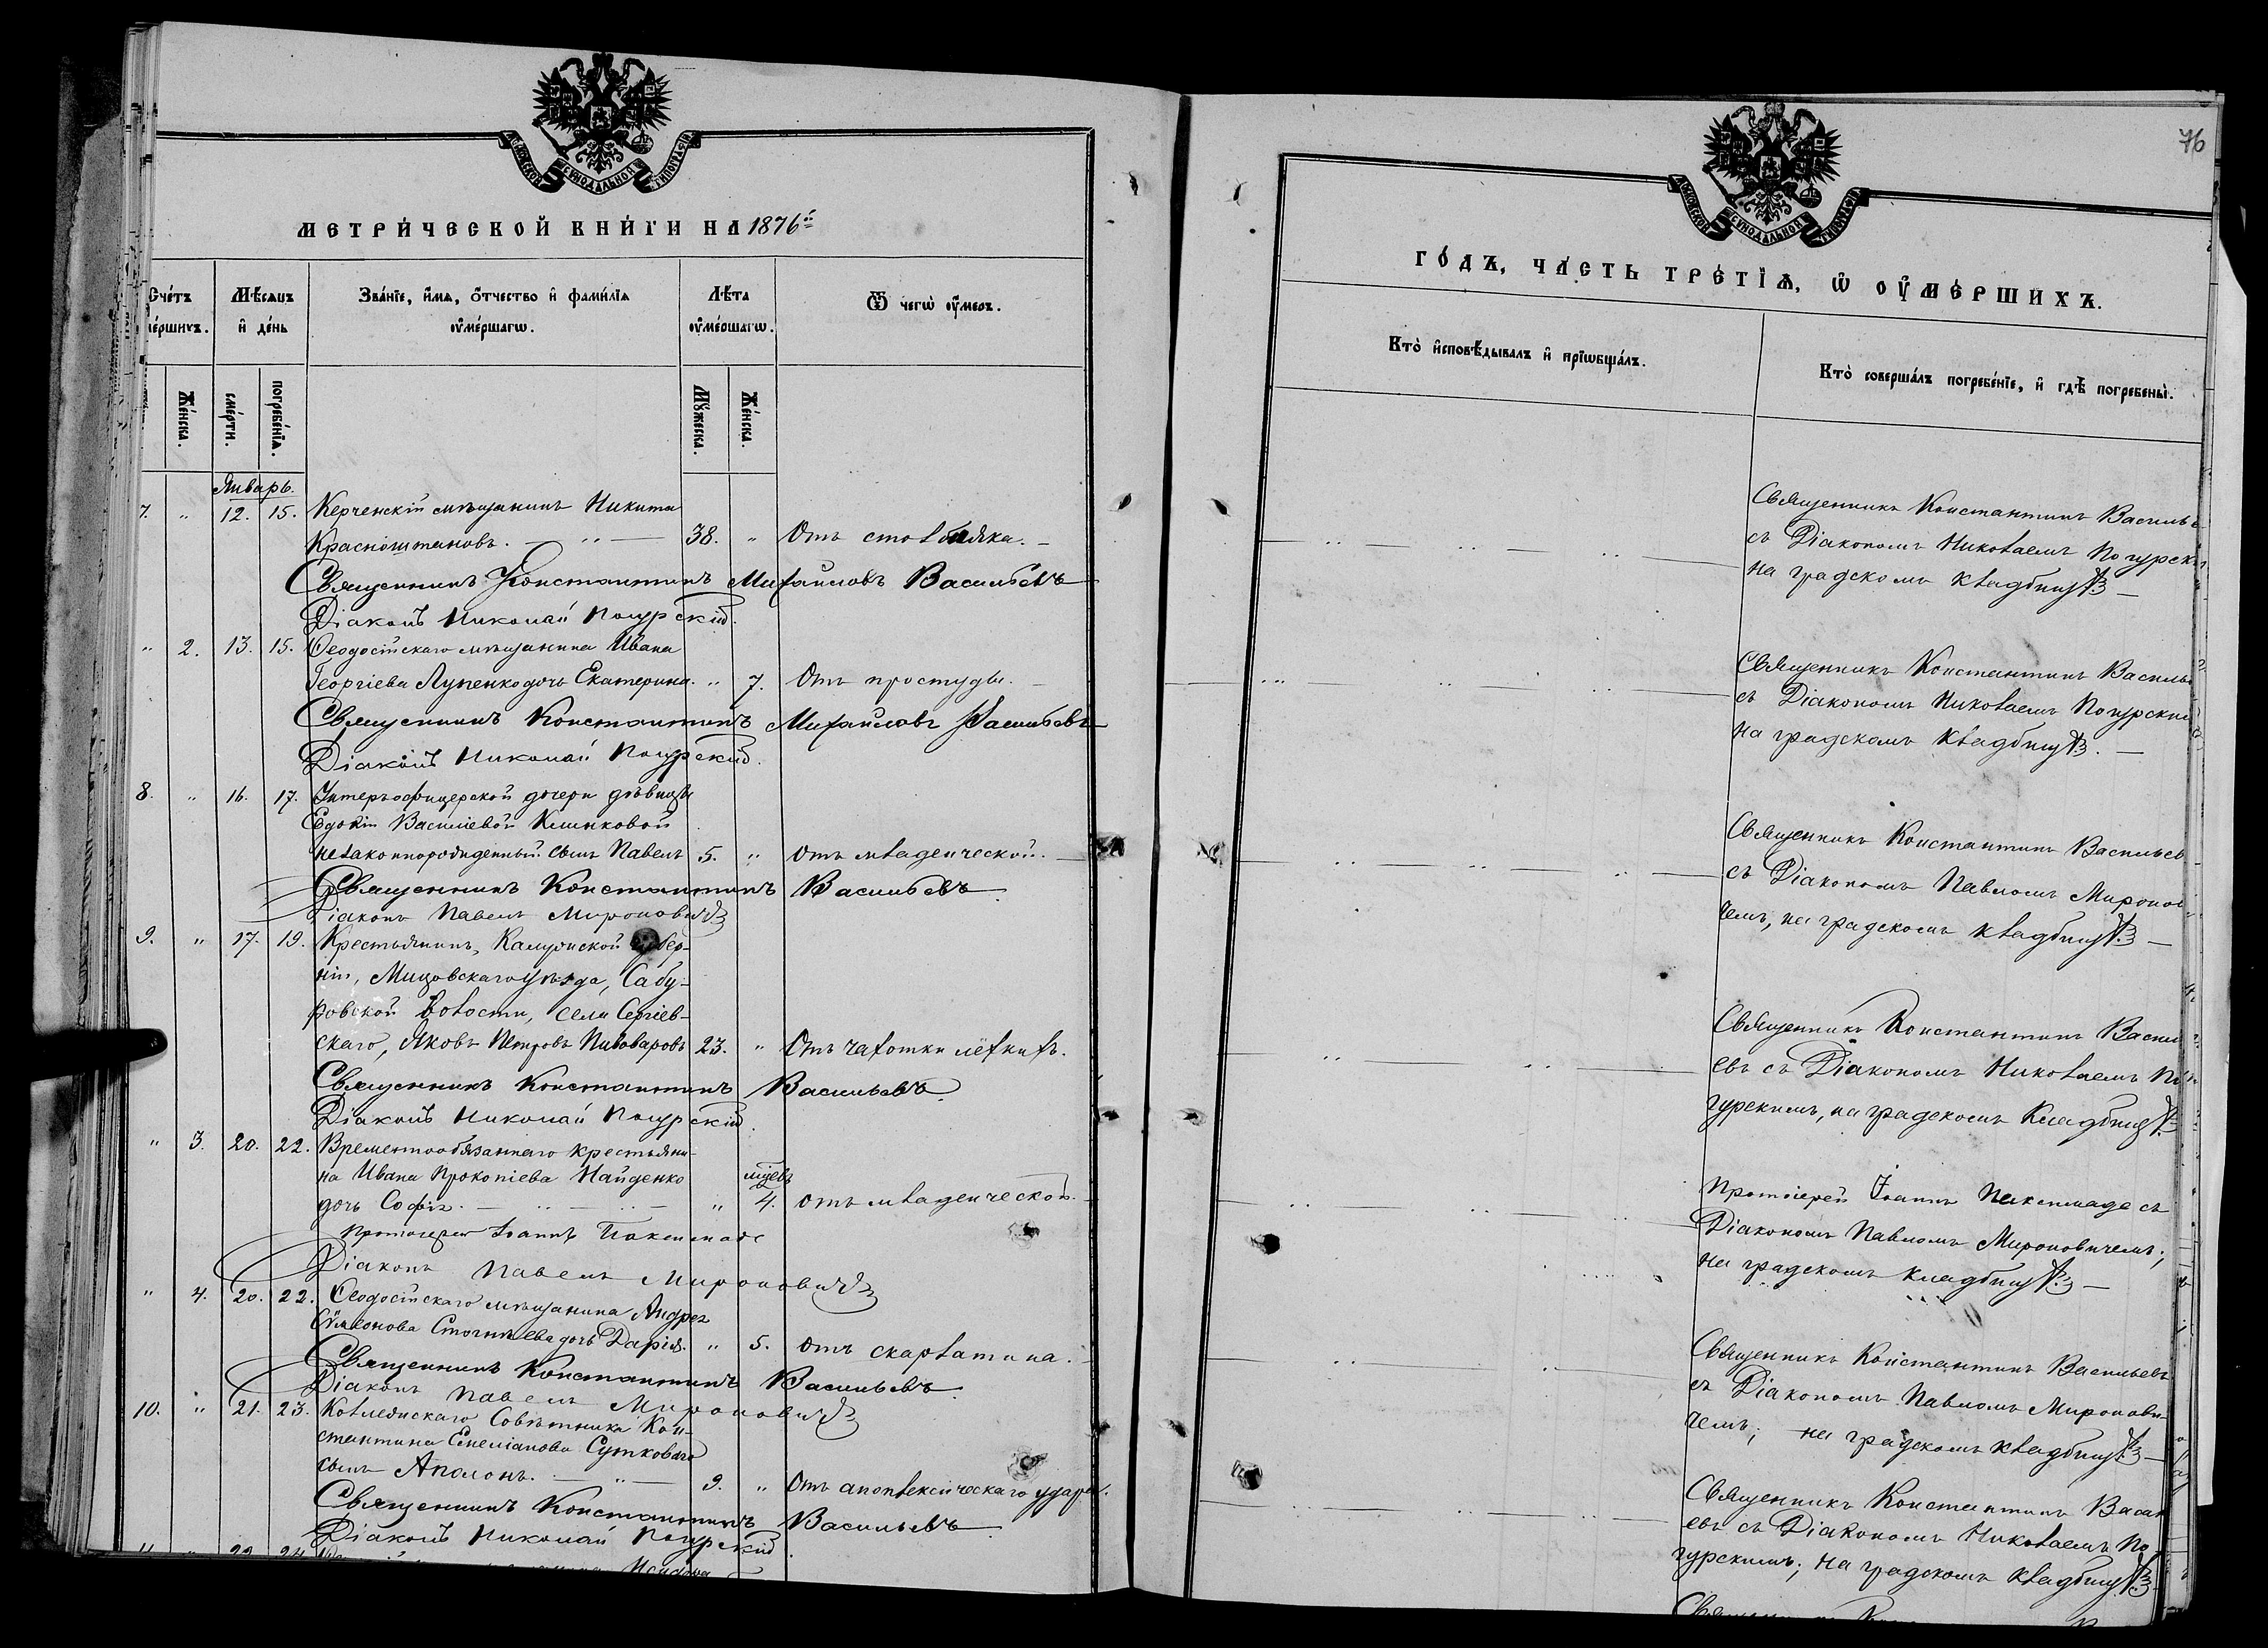 МОСКОВСКОЙ СѴНОДАЛЬНОЙ ТИПОГРАФІИ
МЕТРИ́ЧЕСКОЙ КНИ́ГИ НА 1876й
Сче́тъ
ме́ршихъ.
Мѣ́сяцъ
и҆ де́нь
Зва́нїе, и҆́мѧ, ѻ҆́тчество и҆ фами́лїѧ
оу҆ме́ршагѡ.
Лѣ́та
оу҆ме́ршагѡ.
Ѿ чегѡ̀ оу҆́меръ.
Же́нска.
сме́рти.
погребе́нїѧ.
Мꙋ́жеска.
Же́нска.
Январь.
7. " 12. 15. Керченскій мѣщанинъ Никита
Красноштановъ. — " — 38. " Отъ столбняка. —
Священникъ Константинъ Михайловъ Васильевъ
Діаконъ Николай Погурскій.
" 2. 13. 15. Ѳеодосійскаго мѣщанина Ивана
Георгіева Лупенко дочь Екатерина. " 7. Отъ простуды.
Священникъ Константинъ Михайловъ Васильевъ
Діаконъ Николай Погурскій.
8. " 16. 17. Унтеръ-офицерской дочери дѣвицы
Евдокіи Василіевой Климковой
незаконнорожденный сынъ Павелъ 5. " Отъ младенческой. —
Священникъ Константинъ Васильевъ.
Діаконъ Павелъ Мироновичъ
9. " 17. 19. Крестьянинъ, Калужской губер-
ніи, Мицовскаго уѣзда, Сабу-
ровской волости, села Сергіев-
скаго, Яковъ Петровъ Пивоваровъ 23. " Отъ чахотки лёгкихъ.
Священникъ Константинъ Васильевъ.
Діаконъ Николай Погурскій.
" 3. 20. 22. Временнообязаннаго крестьяни-
на Ивана Прокопіева Найденко
мцевъ
дочь Софія. — " — " — " 4. Отъ младенческой. —
Протоіерей Іоаннъ Паксимаде
Діаконъ Павелъ Мироновичъ
" 4. 20. 22. Ѳеодосійскаго мѣщанина Андрея
Сѵмеонова Стогніева дочь Дарія. " 5. Отъ скарлатина. —
Священникъ Константинъ Васильевъ.
Діаконъ Павелъ Мироновичъ
10. " 21. 23. Коллежскаго Совѣтника Кон-
стантина Емеліанова Сутковаго
сынъ Аполонъ. — " — 9. " Отъ апоплексическаго удара.
Священникъ Константинъ Васильевъ.
Діаконъ Николай Погурскій.
76
МОСКОВСКОЙ СѴНОДАЛЬНОЙ ТИПОГРАФІИ
ГО́ДЪ, ЧА́СТЬ ТРЕ́ТЇѦ, Ѡ҆ ОУ҆МЕ́РШИХЪ.
Кто̀ и҆сповѣ́дывалъ и҆ прїѡбща́лъ.
Кто̀ соверша́лъ погребе́нїе, и҆ гдѣ̀ погребены̀.
Священникъ Константинъ Василье
съ Діакономъ Николаемъ Погурски
на градскомъ кладбищѣ —
Священникъ Константинъ Василь
съ Діакономъ Николаемъ Погурским
на градскомъ кладбищѣ. —
Священникъ Константинъ Васильев
съ Діакономъ Павломъ Миронови
чемъ, на градскомъ кладбищѣ —
Священникъ Константинъ Васил
евъ съ Діакономъ Николаемъ По
гурскимъ, на градскомъ кладбищѣ
Протоіерей Іоаннъ Паксимаде съ
Діакономъ Павломъ Мироновичемъ;
на градскомъ кладбищѣ —
Священникъ Константинъ Васильевъ
съ Діакономъ Павломъ Миронови-
чемъ; на градскомъ кладбищѣ —
Священникъ Константинъ Васил
евъ съ Діакономъ Николаемъ По-
гурскимъ; на градскомъ кладбищѣ